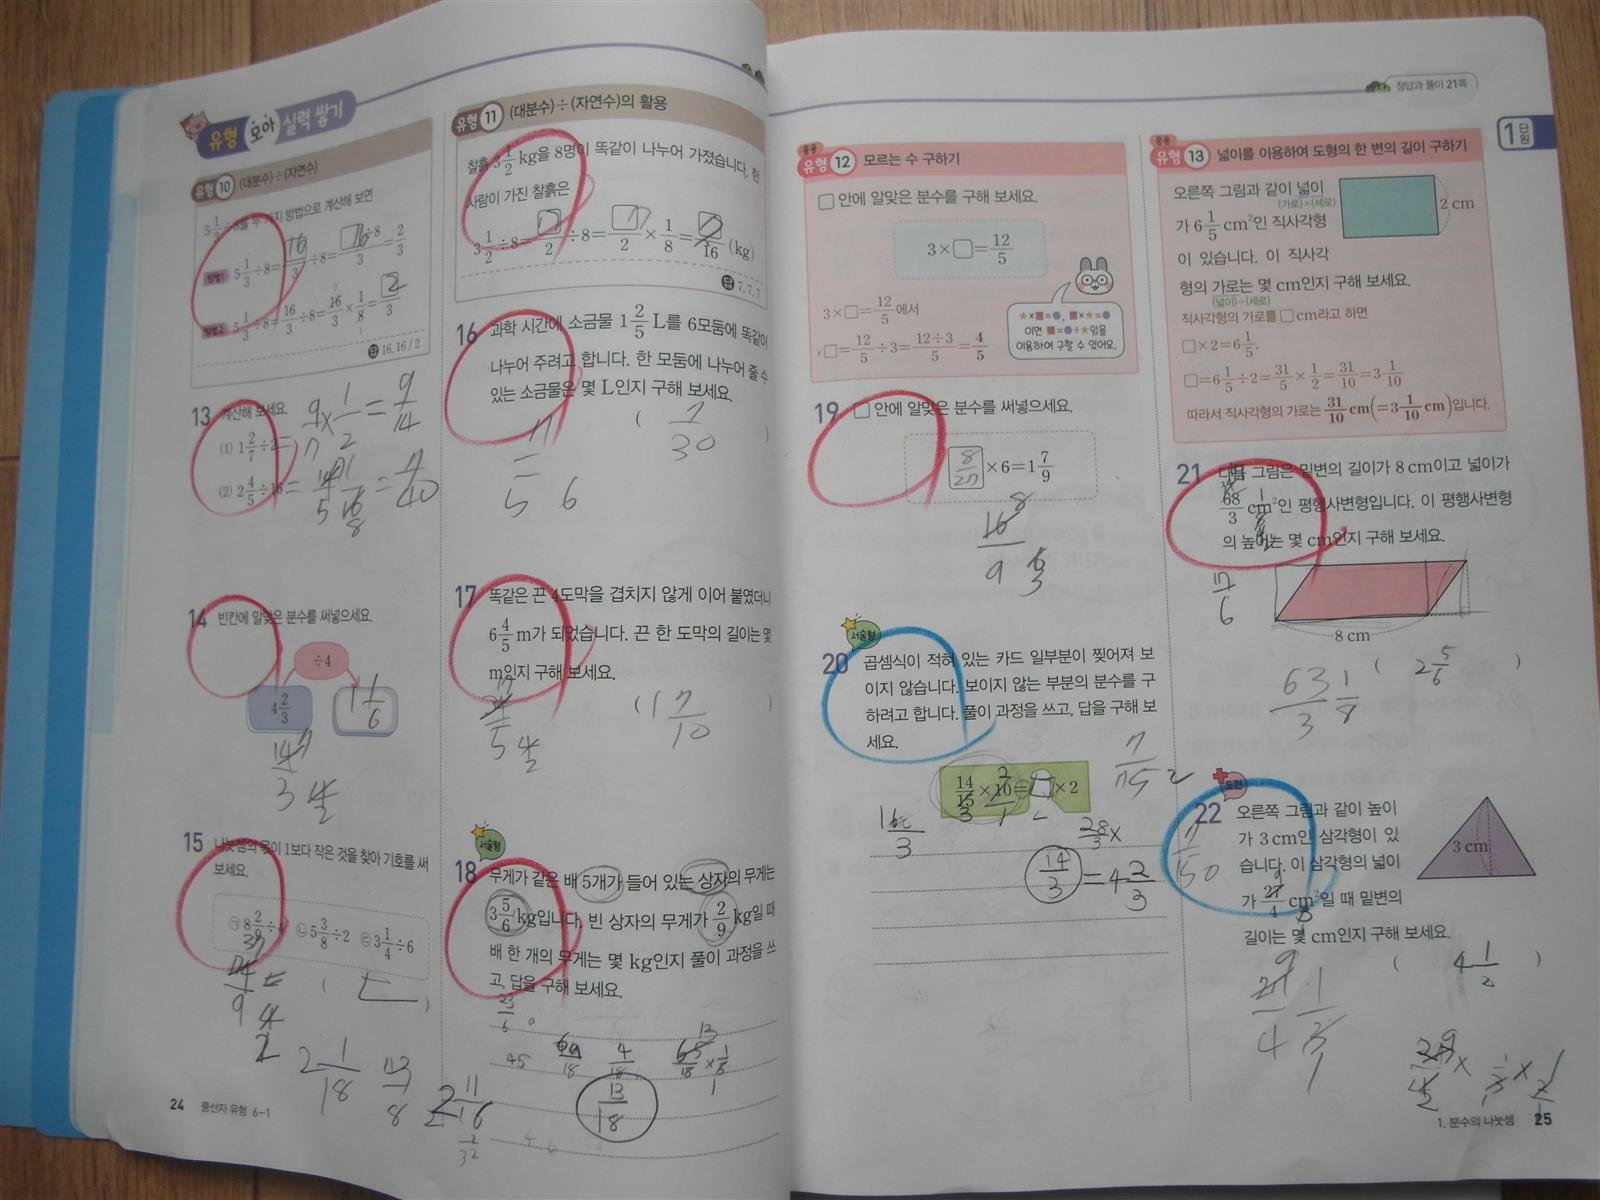 유형 모아 실력 쌓기
유형 10 (대분수)÷(자연수)
방법1 5 1/3 ÷8= 16/3 ÷8= 16÷8/3 = 2/3
방법2 5 1/3 ÷8= 16/3 ÷8= 16/3 × 1/8 = 2/3
답 16, 16 / 2
13 계산해 보세요.
(1) 1 2/7 ÷2= 9/7 × 1/2 = 9/14
(2) 2 4/5 ÷16= 14/5 1/16 = 7/40
14 빈칸에 알맞은 분수를 써넣으세요.
÷4
4 2/3
1 1/6
14/3
15 나눗셈의 몫이 1보다 작은 것을 찾아 기호를 써 보세요.
㉠ 8 2/9 ÷4 ㉡ 5 3/8 ÷2 ㉢ 3 1/4 ÷6
( ㄷ )
2 1/18
13/8
2 11/16
24 풍산자 유형 6-1
유형 11 (대분수)÷(자연수)의 활용
찰흙 3 1/2 kg을 8명이 똑같이 나누어 가졌습니다. 한
사람이 가진 찰흙은
3 1/2 ÷8= 7/2 ÷8= 7/2 × 1/8 = 7/16 (kg)
답 7, 7, 7
16 과학 시간에 소금물 1 2/5 L를 6모둠에 똑같이
나누어 주려고 합니다. 한 모둠에 나누어 줄 수
있는 소금물은 몇 L인지 구해 보세요.
( 7/30 )
7/5 6
17 똑같은 끈 4도막을 겹치지 않게 이어 붙였더니
6 4/5 m가 되었습니다. 끈 한 도막의 길이는 몇
m인지 구해 보세요.
( 1 7/10 )
서술형
18 무게가 같은 배 5개가 들어 있는 상자의 무게는
3 5/6 kg입니다. 빈 상자의 무게가 2/9 kg일 때
배 한 개의 무게는 몇 kg인지 풀이 과정을 쓰
고, 답을 구해 보세요.
23/6
69/18 4/18 65/18 × 1/5
13/18
정답과 풀이 21쪽
1단원
응용
유형 12 모르는 수 구하기
□ 안에 알맞은 분수를 구해 보세요.
3×□= 12/5
3×□= 12/5 에서
□= 12/5 ÷3= 12÷3/5 = 4/5
★×■=●, ■×★=●
이면 ■=●÷★임을
이용하여 구할 수 있어요.
19 □ 안에 알맞은 분수를 써넣으세요.
8/27 ×6=1 7/9
16/9
서술형
20 곱셈식이 적혀 있는 카드 일부분이 찢어져 보
이지 않습니다. 보이지 않는 부분의 분수를 구
하려고 합니다. 풀이 과정을 쓰고, 답을 구해 보
세요.
14/15 × 10 = □ ×2
28/3 ×
14/3 = 4 2/3
응용
유형 13 넓이를 이용하여 도형의 한 변의 길이 구하기
오른쪽 그림과 같이 넓이
(가로)×(세로)
가 6 1/5 cm²인 직사각형
이 있습니다. 이 직사각
형의 가로는 몇 cm인지 구해 보세요.
(넓이)÷(세로)
2 cm
직사각형의 가로를 □ cm라고 하면
□×2=6 1/5.
□=6 1/5 ÷2= 31/5 × 1/2 = 31/10 =3 1/10
따라서 직사각형의 가로는 31/10 cm(=3 1/10 cm)입니다.
21 다음 그림은 밑변의 길이가 8 cm이고 넓이가
68/3 cm²인 평행사변형입니다. 이 평행사변형
의 높이는 몇 cm인지 구해 보세요.
17/6
8 cm
( 2 5/6 )
63/3 1/8
도전
22 오른쪽 그림과 같이 높이
가 3 cm인 삼각형이 있
습니다. 이 삼각형의 넓이
가 27/4 cm²일 때 밑변의
길이는 몇 cm인지 구해 보세요.
3 cm
( 4 1/2 )
1. 분수의 나눗셈 25